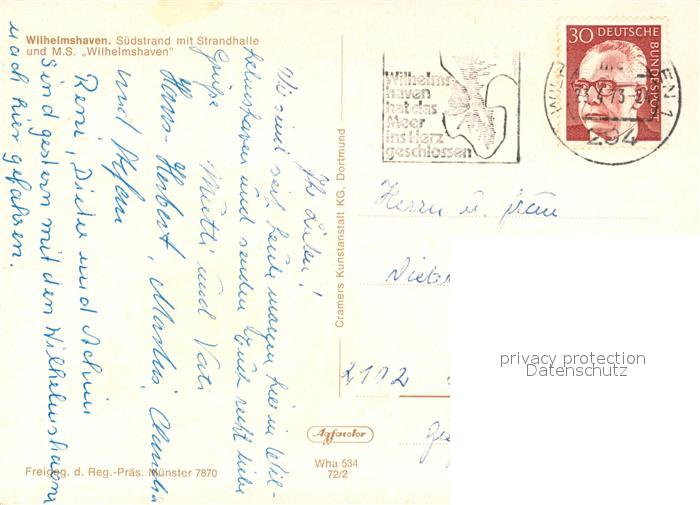 Wilhelmshaven. Südstrand mit Strandhalle
und M.S. „Wilhelmshaven"
Ihr Lieben!
Wir sind seit heute morgen hier in Wil-
helmshaven und senden Euch recht liebe
Grüße
Mutti und Vati
Hans-Herbert, Claudia
und Stefan
Resi, Dieter und Achim
sind gestern mit den Wilhelmshavn
nach hier gefahren.
Freigeg. d. Reg.-Präs. Münster 7870
Cramers Kunstanstalt KG. Dortmund
Agfacolor
Wha 534
72/2
Wilhelms-
haven
hat das
Meer
ins Herz
geschlossen
30 DEUTSCHE
BUNDESPOST
294
Herrn u. Frau
Dieter
2102
privacy protection
Datenschutz